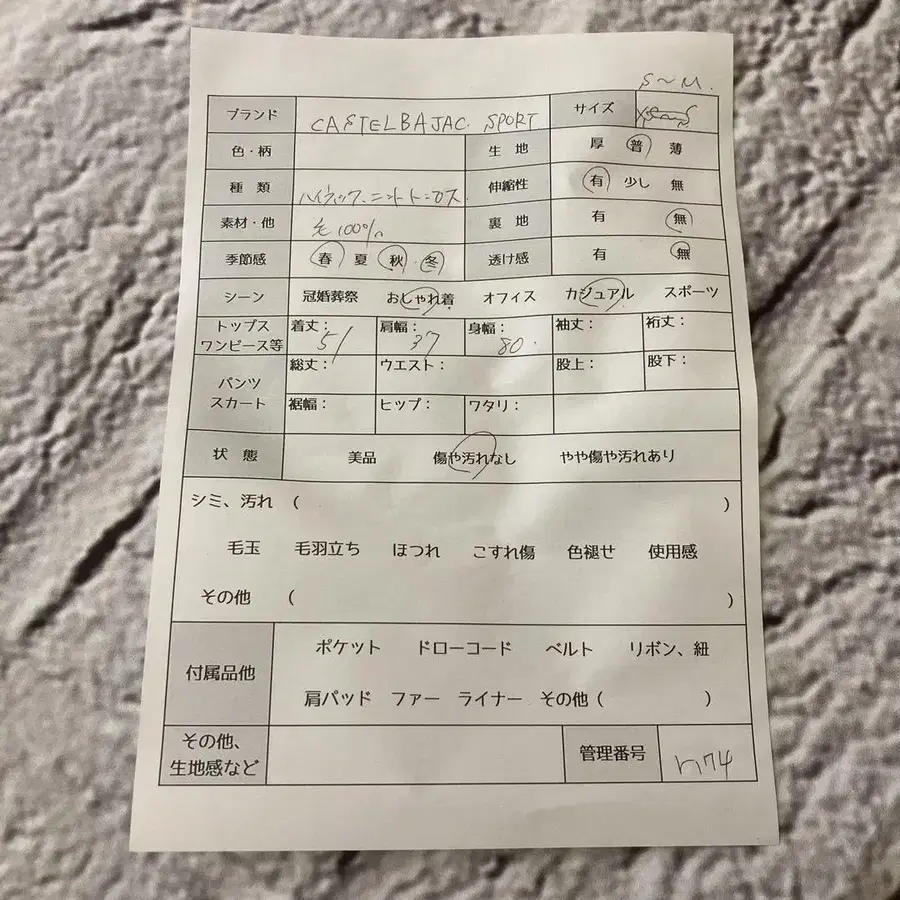 S〜M.
ブランド CASTELBAJAC. SPORT サイズ
色・柄 生地 厚 普 薄
種類 ハイネック、ニットトップス 伸縮性 有 少し 無
素材・他 毛100% 裏地 有 無
季節感 春 夏 秋・冬 透け感 有 無
シーン 冠婚葬祭 おしゃれ着 オフィス カジュアル スポーツ
トップス ワンピース等 着丈:51 肩幅:37 身幅:80. 袖丈: 裄丈:
パンツ スカート 総丈: ウエスト: 股上: 股下:
裾幅: ヒップ: ワタリ:
状態 美品 傷や汚れなし やや傷や汚れあり
シミ、汚れ ( )
毛玉 毛羽立ち ほつれ こすれ傷 色褪せ 使用感
その他 ( )
付属品他 ポケット ドローコード ベルト リボン、紐
肩パッド ファー ライナー その他 ( )
その他、 生地感など 管理番号 n74